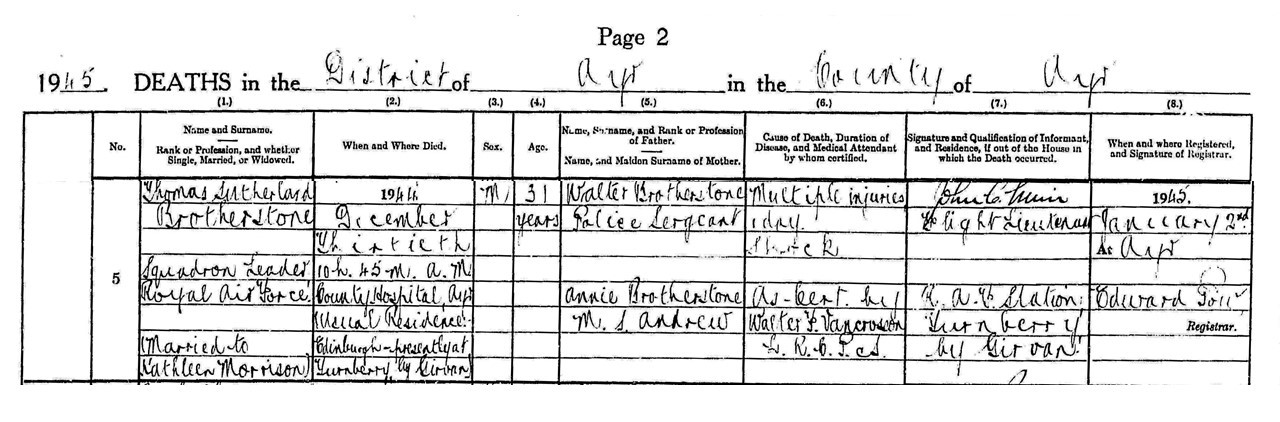 Page 2
1945. DEATHS in the District of Ayr in the County of Ayr
(1.) (2.) (3.) (4.) (5.) (6.) (7.) (8.)
No.
Name and Surname.
Rank or Profession, and whether
Single, Married, or Widowed.
When and Where Died.
Sex.
Age.
Name, Surname, and Rank or Profession
of Father.
Name, and Maiden Surname of Mother.
Cause of Death, Duration of
Disease, and Medical Attendant
by whom certified.
Signature and Qualification of Informant,
and Residence, if out of the House in
which the Death occurred.
When and where Registered,
and Signature of Registrar.
5
Thomas Sutherland
Brotherstone
Squadron Leader
Royal Air Force.
(Married to
Kathleen Morrison)
1944
December
Thirtieth
10-h. 45-m. A.M
County Hospital Ayr
(Usual Residence:-
Edinburgh-presently at
Turnberry by Girvan)
M.
31
years
Walter Brotherstone
Police Sergeant
Annie Brotherstone
M. S. Andrew
Multiple injuries
1 day.
Shock
As-cert. by
Walter F.
L. R. C. P. &S
John C.
Flight Lieutenant
R. A. F. Station:
Turnberry
by Girvan.
1945.
January 2nd.
At Ayr
Edward
Registrar.